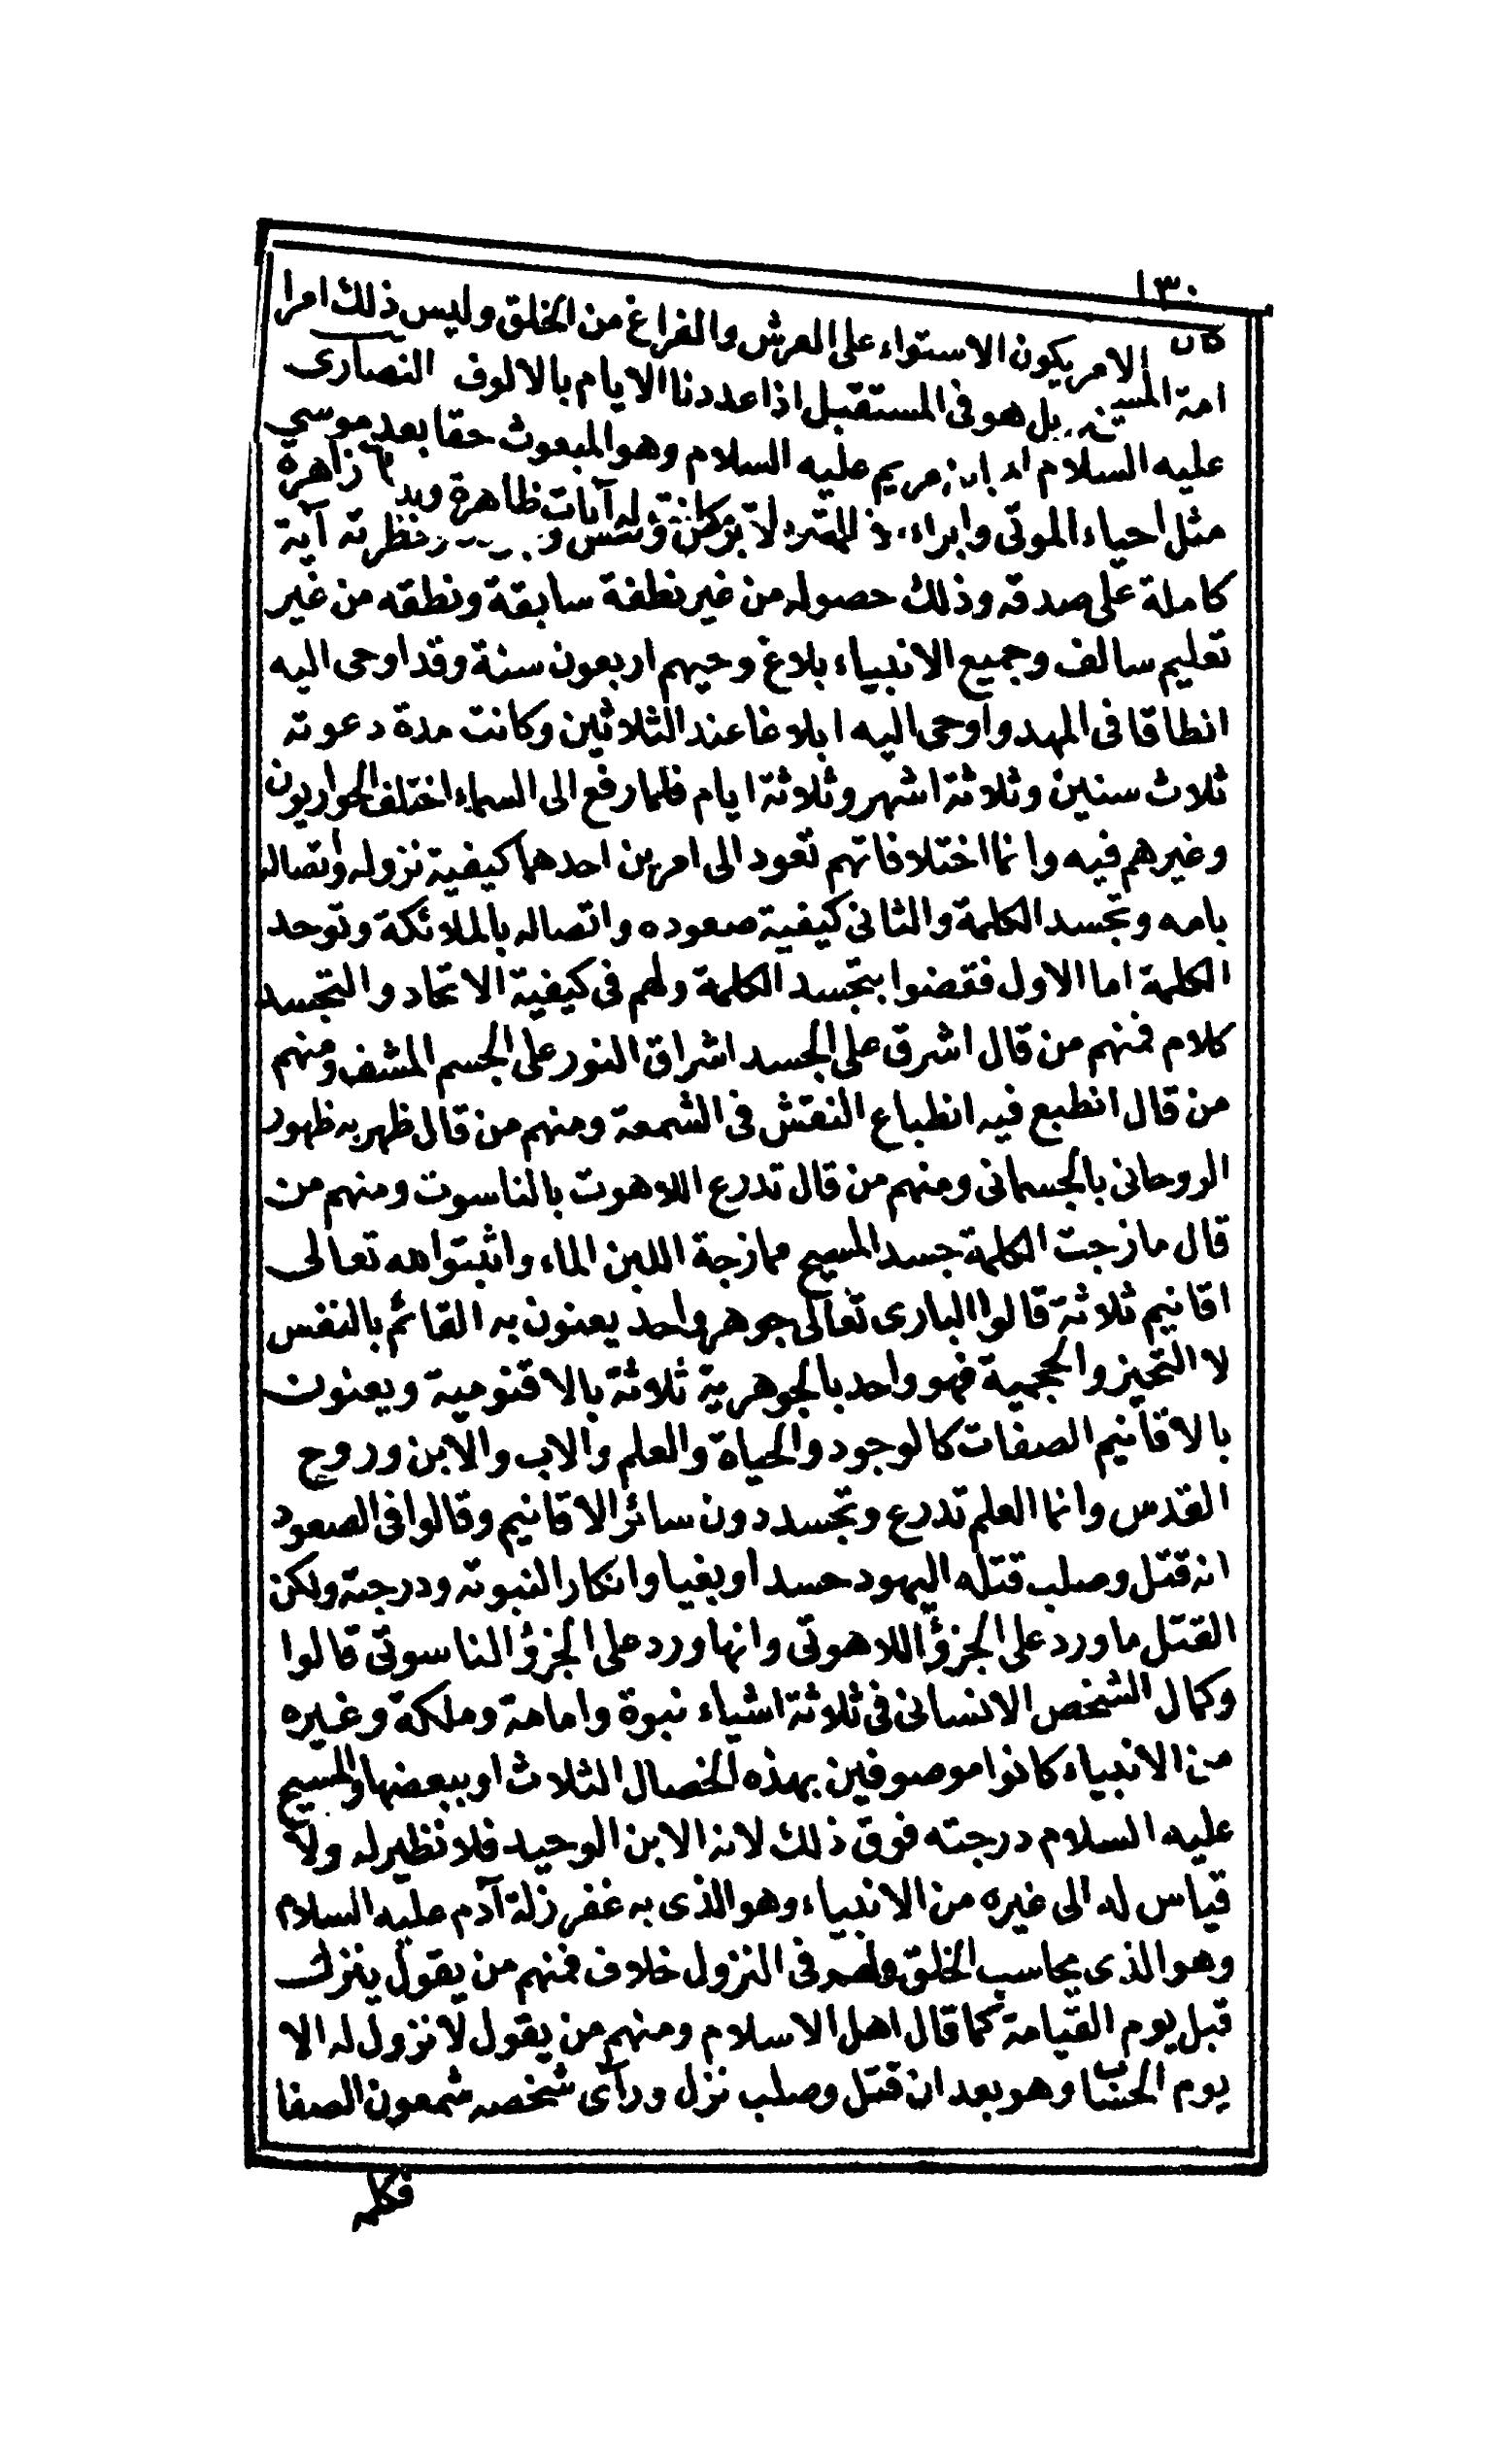 ١٣٠
كان الامر يكون الاستواء على العرش والفراغ من الخلق وليس ذلك امرا
بل هو فى المستقبل اذا عددنا الايام بالالوف النصارى
امة المسيح بن مريم عليه السلام وهو المبعوث حقا بعد موسى
عليه السلام وكانت له آيات ظاهرة زاهرة
مثل احياء الموتى وابراء آية
كاملة على صدقه وذلك حصوله من غير نطفة سابقة ونطقه من غير
تعليم سالف وجميع الانبياء بلاغ وحيهم اربعون سنة وقد اوحى اليه
انطاقا فى المهد واوحى اليه ابلاغا عند الثلاثين وكانت مدة دعوته
ثلاث سنين وثلاثة اشهر وثلاثة ايام فلما رفع الى السماء اختلف الحواريون
وغيرهم فيه وانما اختلافاتهم تعود الى امرين احدهما كيفية نزوله واتصاله
بامه وتجسد الكلمة والثانى كيفية صعوده واتصاله بالملائكة وتوحد
الكلمة اما الاول فقضوا بتجسد الكلمة ولهم فى كيفية الاتحاد والتجسد
كلام فمنهم من قال اشرق على الجسد اشراق النور على الجسم المشف ومنهم
من قال انطبع فيه انطباع النقش فى الشمعة ومنهم من قال ظهر به ظهور
الروحانى بالجسمانى ومنهم من قال تدرع اللاهوت بالناسوت ومنهم من
قال مازجت الكلمة جسد المسيح ممازجة اللبن الماء واثبتوا لله تعالى
اقانيم ثلاثة قالوا البارى تعالى جوهر واحد يعنون به القائم بالنفس
لا التحيز والحجمية فهو واحد بالجوهرية ثلاثة بالاقنومية ويعنون
بالاقانيم الصفات كالوجود والحياة والعلم والاب والابن وروح
القدس وانما العلم تدرع وتجسد دون سائر الاقانيم وقالوا فى الصعود
انه قتل وصلب قتله اليهود حسدا وبغيا وانكار النبوته ودرجته ولكن
القتل ماورد على الجزؤ اللاهوتى وانها ورد على الجزؤ الناسوتى قالوا
وكمال الشخص الانسانى فى ثلاثة اشياء نبوة وامامة وملكة وغيره
من الانبياء كانوا موصوفين بهذه الخصال الثلاث او ببعضها والمسيح
عليه السلام درجته فوق ذلك لانه الابن الوحيد فلا نظير له ولا
قياس له الى غيره من الانبياء وهو الذى به غفر زلة آدم عليه السلام
وهو الذى يحاسب الخلق ولهم فى النزول خلاف فمنهم من يقول ينزل
قبل يوم القيامة كما قال اهل الاسلام ومنهم من يقول لا نزول له الا
يوم الحساب وهو بعد ان قتل وصلب نزل ورآى شخصه شمعون الصفا
فكلمه